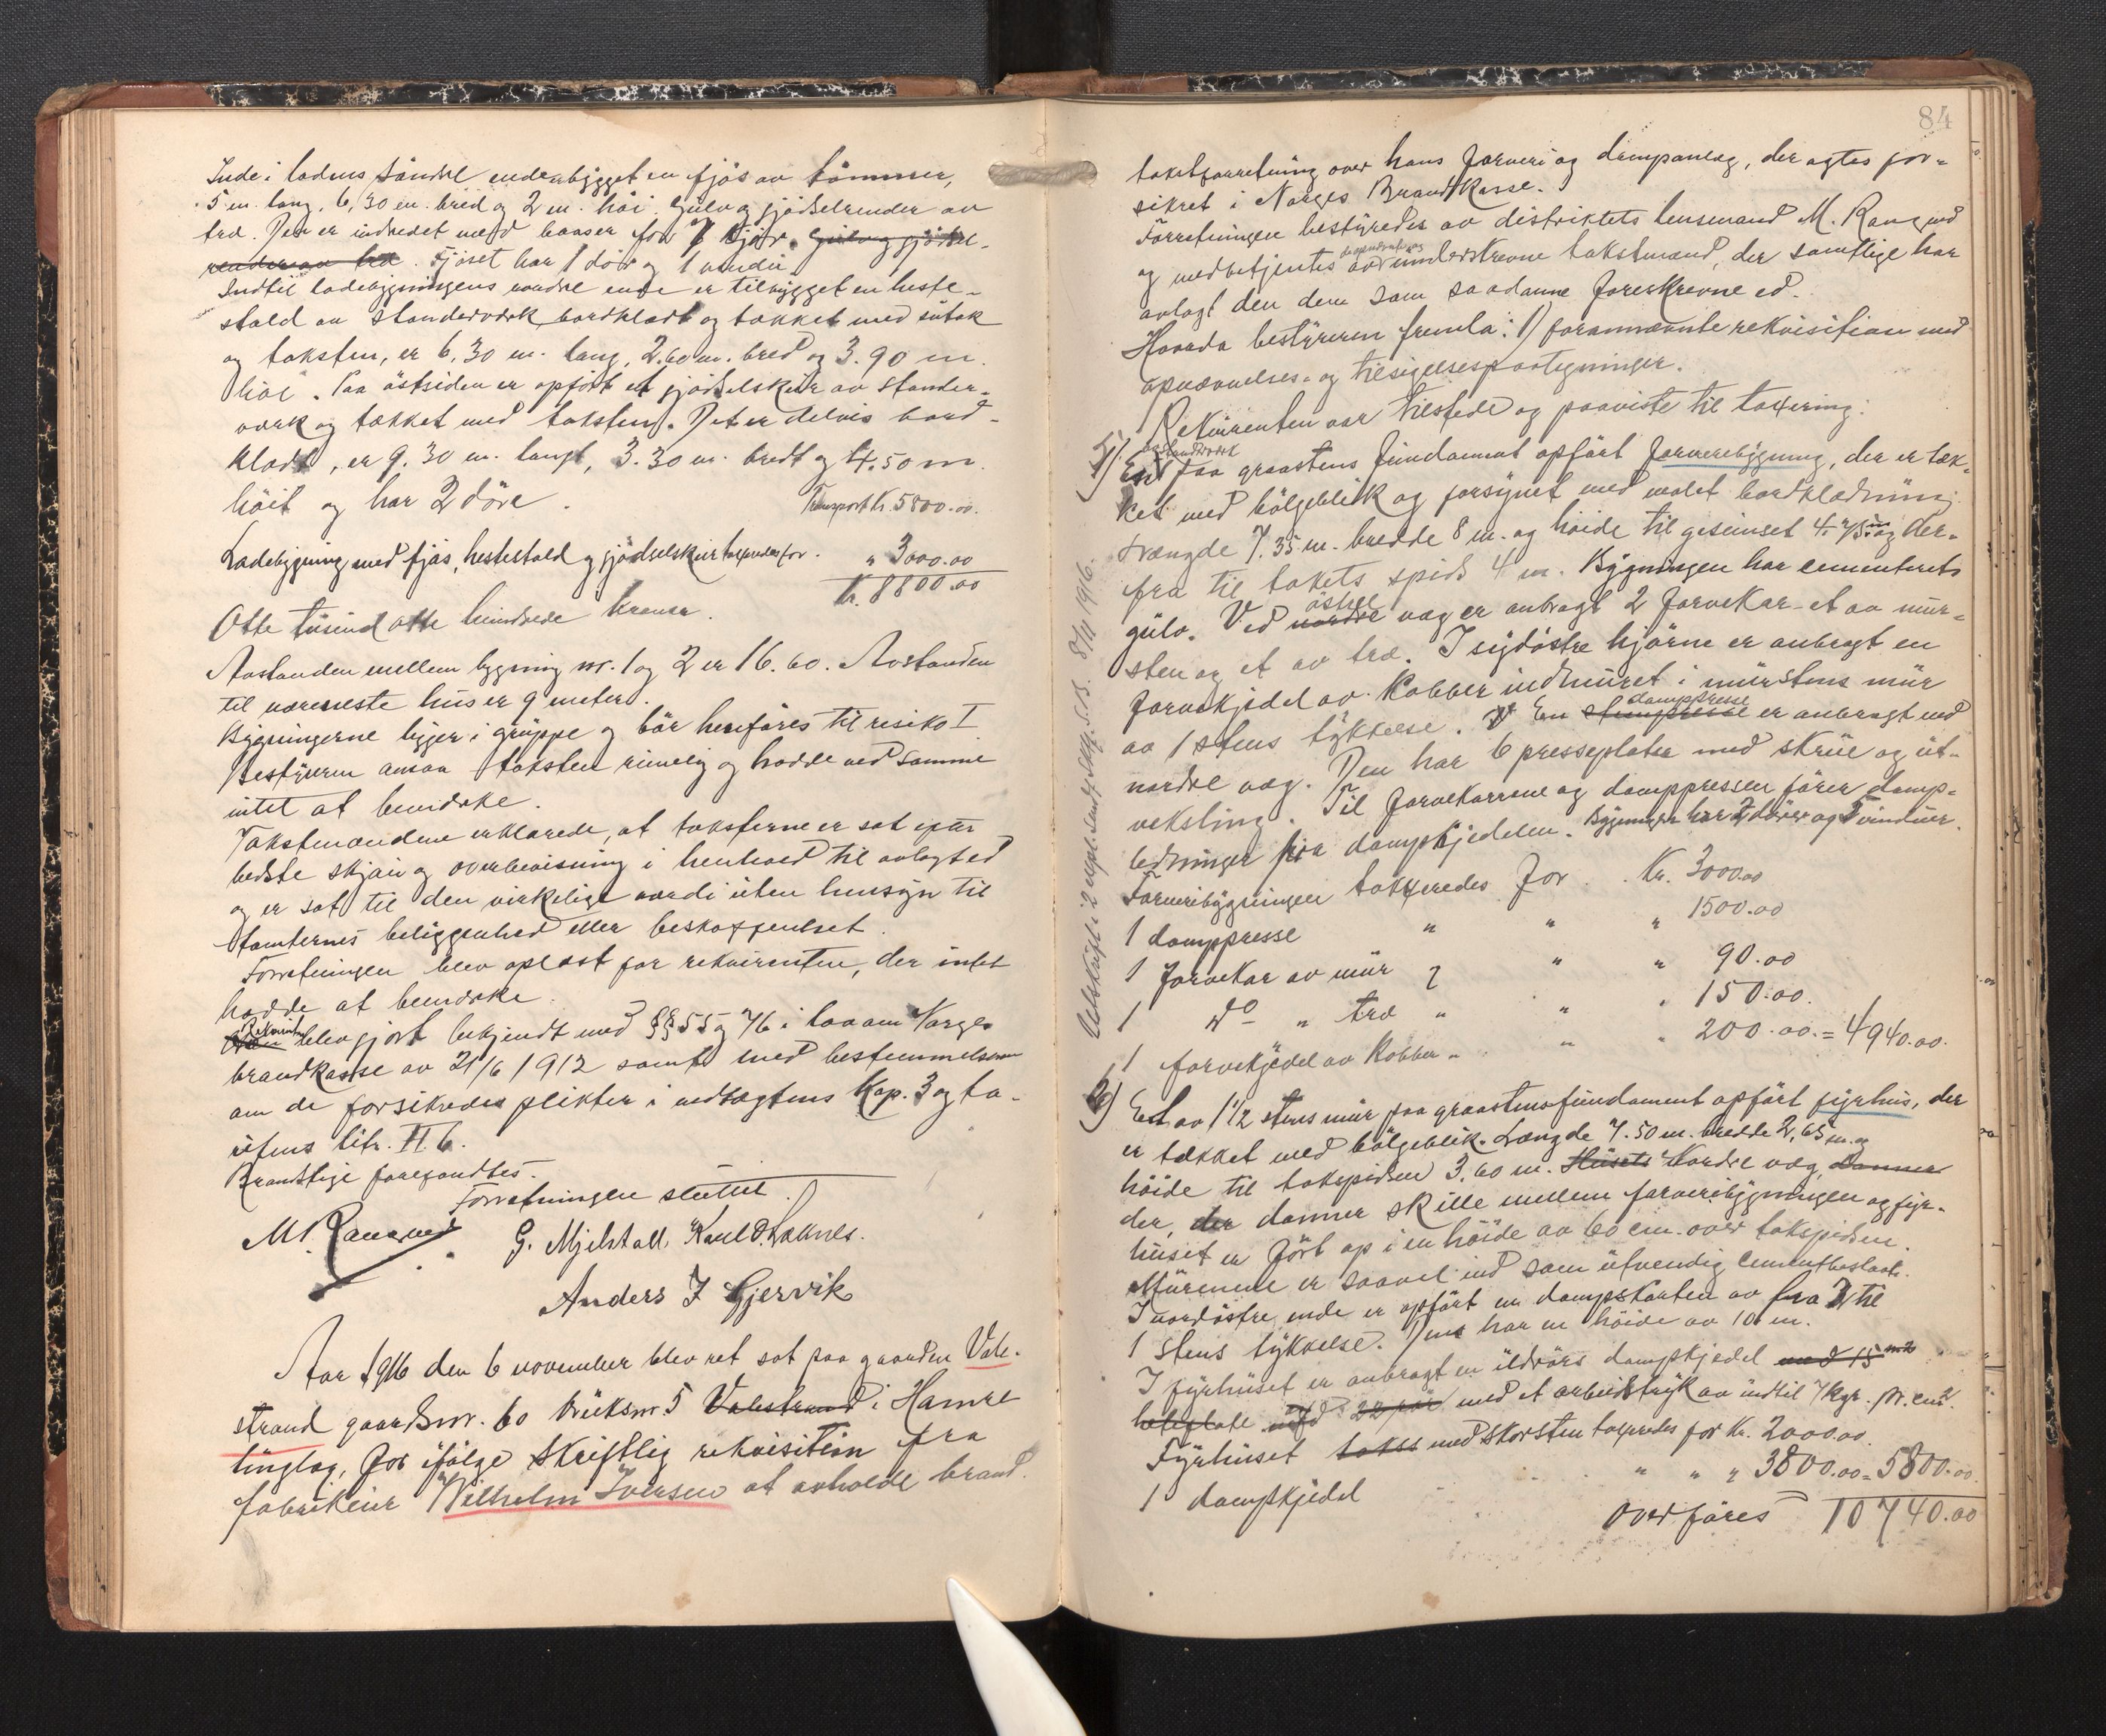 Inde i ladens söndre ende er bygget en fjös av tömmer,
5 m. lang, 6,30 m. bred og 2 m. höi. Gulv og gjödselrender av
træ. Den er indredet med baaser for 7 kjör. Gulv og gjödsel-
render av træ. Fjöset har 1 dör og 1 vindu.
Indtil ladebygningens nordre ende er tilbygget en heste-
stald av standerværk bordklædt og tækket med sutak
og taksten, er 6.30 m. lang, 2.60 m. bred og 3.90 m.
höi. Paa östsiden er opfört et gjödselskur av stander-
værk og tækket med taksten. Det er delvis bord-
klædt, er 9.30 m. langt, 3.30 m. bredt og 4.50 m.
höit og har 2 döre.
Transport Kr. 5800.00.
Ladebygning med fjös, hestestald og gjödselskur taxeredes for. " 3000.00
Kr. 8800.00
Otte tusind otte hundrede kroner.
Avstanden mellem bygning nr. 1 og 2 er 16.60. Avstanden
til nærmeste hus er 9 meter.
Bygningerne ligger i gruppe og bör henföres til risiko I
Bestyreren ansaa taksten rimelig og hadde ved samme
intet at bemærke.
Takstmændene erklærede, at taksterne er sat efter
bedste skjön og overbevisning i henhold til avlagt ed
og er sat til den virkelige værdi uten hensyn til
tomternes beliggenhed eller beskaffenhet.
Forretningen blev oplæst for rekvirenten, der intet
hadde at bemærke.
Rekvirenten
blev gjort bekjendt med §§ 55 og 76 i lov om Norges
brandkasse av 21/6 1912 samt med bestemmelserne
om de forsikredes plikter i vedtægtens Kap. 3 og ta-
riffens litr. H. 6.
Brandstige forefandtes.
Forretningen sluttet.
M. Rangnes G. Mjelstad, Karl O. Loknes.
Anders I Gjervik
Aar 1916 den 6 november blev ret sat paa gaarden Vale-
strand gaardsnr. 60 bruksnr. 5 Valestrand i Hamre
tinglag, for ifölge skriftlig rekvisition fra
fabrikeier Wilhelm Iversen at avholde brand-
84
takstforretning over hans farveri og dampanlæg, der agtes for-
sikret i Norges Brandkasse.
Forretningen bestyredes av distriktets lensmand M. Rangnes
og medbetjentes av opnævnte og underskrevne takstmænd, der samtlige har
avlagt den dem som saadanne foreskrevne ed.
Hvorda bestyreren fremla: 1) forannævnte rekvisition med
opnævnelses- og tilsigelsespaategninger.
Rekvirenten var tilstede og paaviste til taxering:
av standerværk
1) Et paa graastens fundament opfört farveribygning, der er tæk-
ket med bölgeblik og forsynet med malet bordklædning
Længde 7.35 m. bredde 8 m. og höide til gesimset 4.75 m. og der-
fra til takets spids 4 m. Bygningen har cementerets
gulv. Ved nordre östre væg er anbragt 2 farvekar - et av mur-
sten og et av træ. I sydöstre hjörne er anbragt en
farvekjedel av kobber indmuret i murstens mur
av 1 stens tykkelse. En damppresse er anbragt ved
nordre væg. Den har 6 presseplater med skrue og ut-
veksling. Til farvekarrene og damppressen förer damp-
ledninger fra dampkjedelen. Bygningen har 2 dörer og 5 vinduer.
Farveribygningen taxeredes for . . Kr. 3000.00
1 damppresse " " " 1500.00
1 farvekar av mur " " " 90.00
1 do " træ " " " 150.00.
1 farvekjedel av kobber " " " 200.00. = 4940.00.
2) Et av 1 1/2 stens mur paa graastensfundament opfört fyrhus, der
er tækket med bölgeblik. Længde 7.50 m. bredde 2,65 m. og
höide til takspidsen 3.60 m. Husets Nordre væg, danner
der, der danner skille mellem farveribygningen og fyr-
huset er fört op i en höide av 60 cm. over takspidsen.
Murene er saavel ind som utvendig cementbeslaat.
I nordöstre ende er opfört en dampskorsten av fra 2 til
1 stens tykkelse. Den har en höide av 10 m.
I fyrhuset er anbragt en ildrörs dampkjedel med 15 m2
heteflate med 22 rör med et arbeidstryk av indtil 7 kgr. pr. cm2.
Fyrhuset takst med skorsten taxeredes for Kr. 2000.00.
1 dampkjedel " " " 3800.00 = 5800.00.
Overföres 10740.00
Utskrift i 2 expl. sendt 8/11 1916.